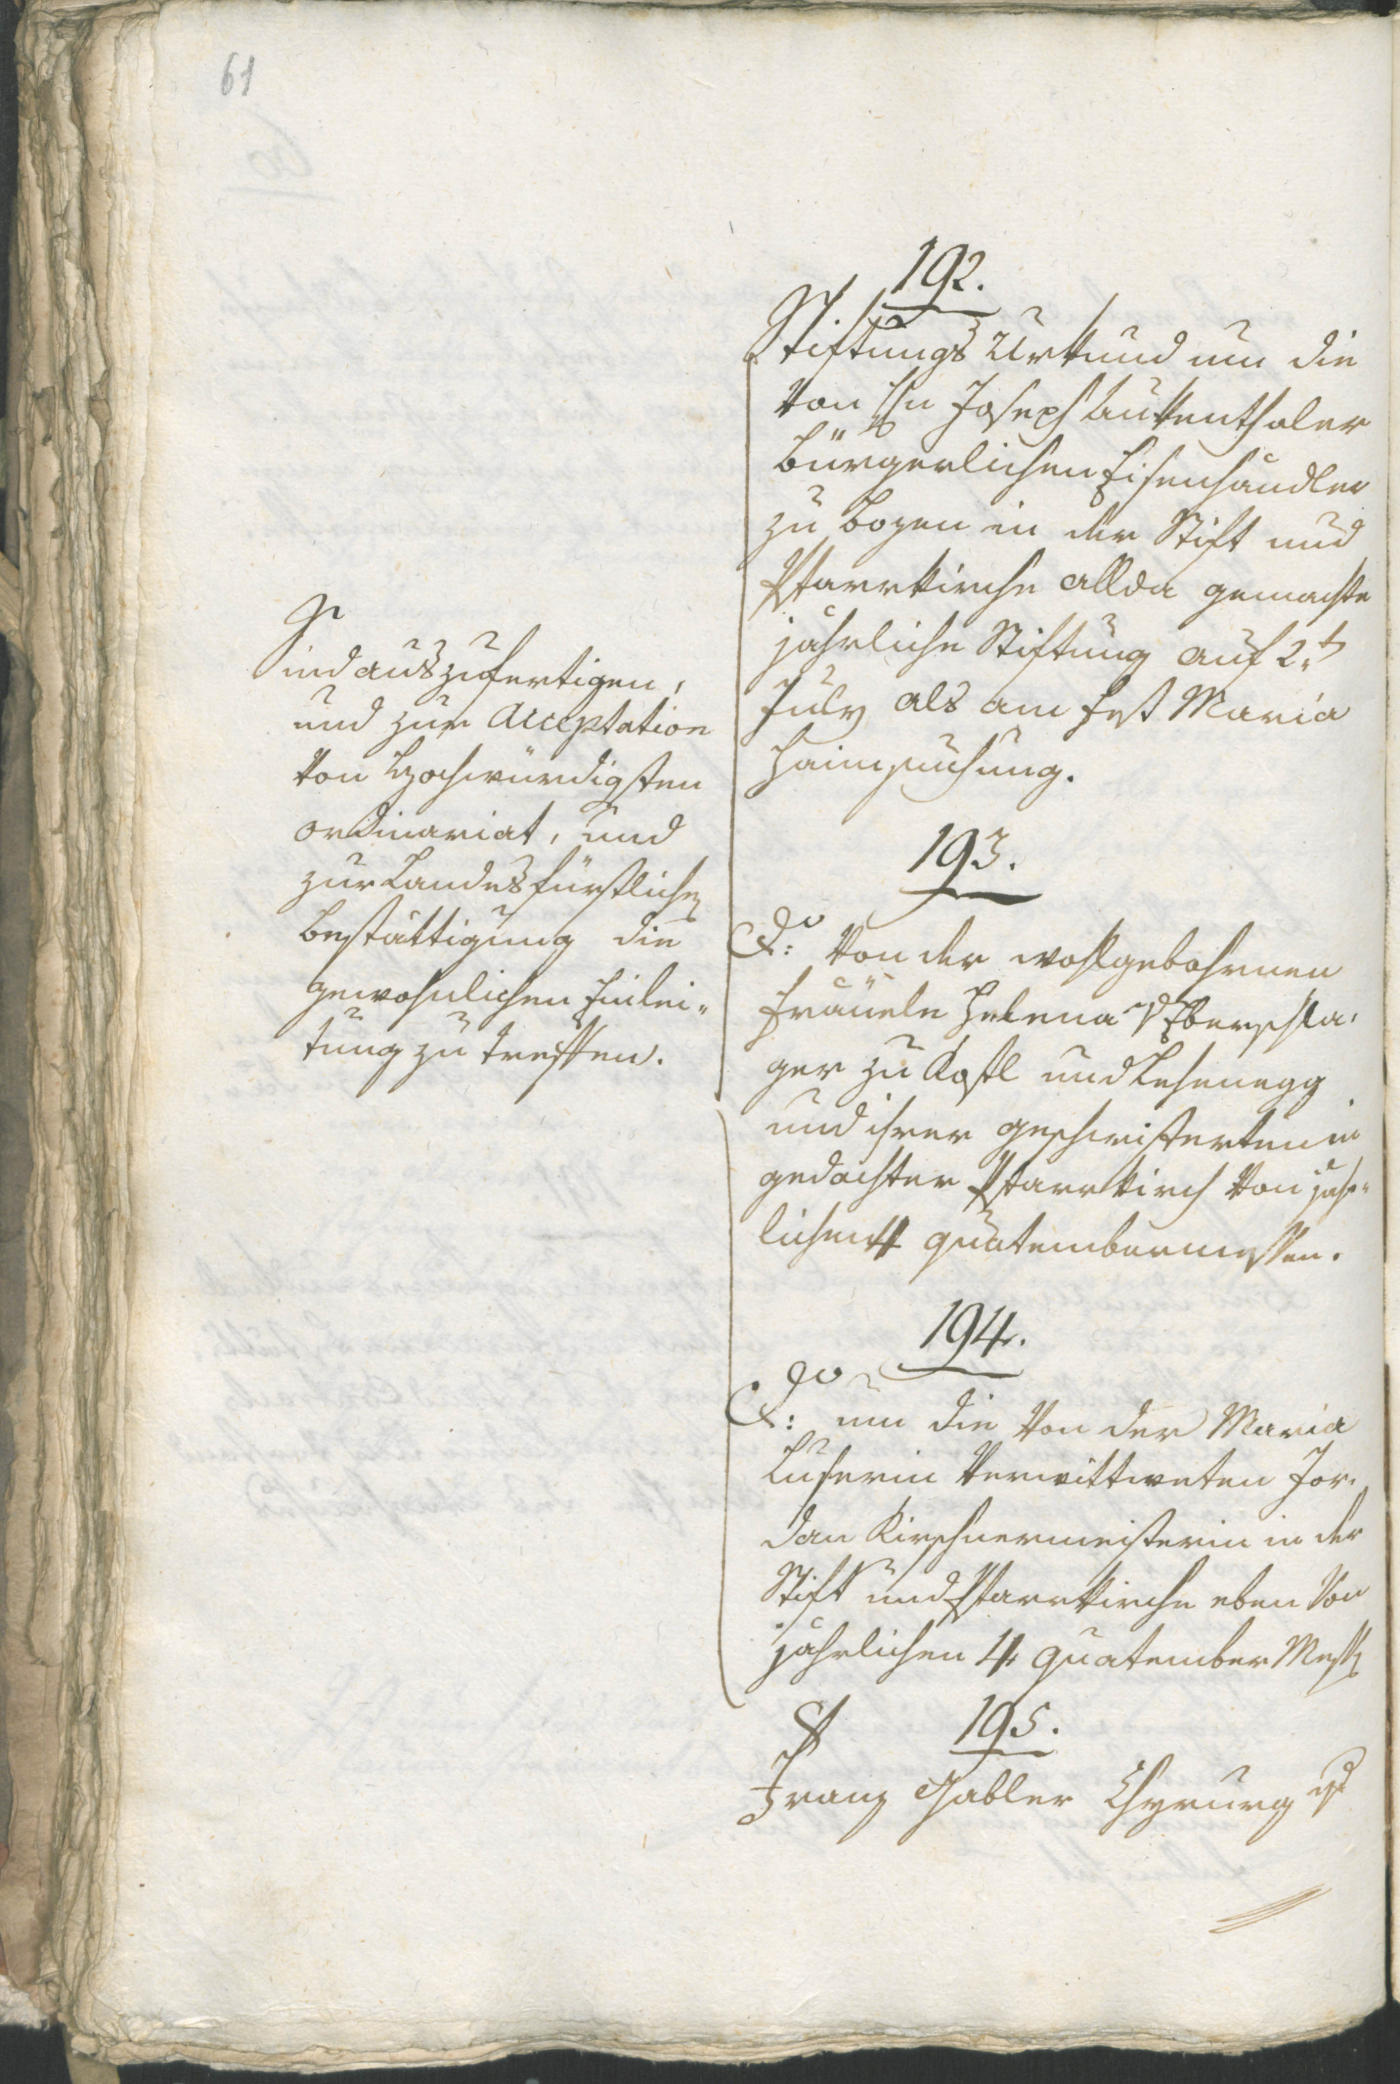 61
192.
Stiftungs Urkund um die
von Hn Joseph Aukenthaler
bürgerlichen Eisenhandler
zu Bozen in der Stift und
Pfarrkirche allda gemachte
jährliche Stiftung auf 2.t
July als am Fest Maria
Haimsuchung.
Sind auszufertigen,
und zur Acceptation
von Hochwürdigsten
Ordinariat, und
zur Landesfürstlichen
Bestättigung die
gewohnlichen Einlei-
tung zu treffen.
193.
do von der wohlgebohrnen
Fräuele Helena v Eberschla-
ger zu Kostl und Lehenegg
und ihrer geschwisterten in
gedachter Pfarrkirch von jähr-
lichen 4 quatembermessen.
194.
do um die von der Maria
Luserin verwittweten Jor-
dan Kirschnermeisterin in der
Stift und Pfarrkirche eben von
jährlichen 4 quatember Messen
195.
Franz Gabler Chyrurg